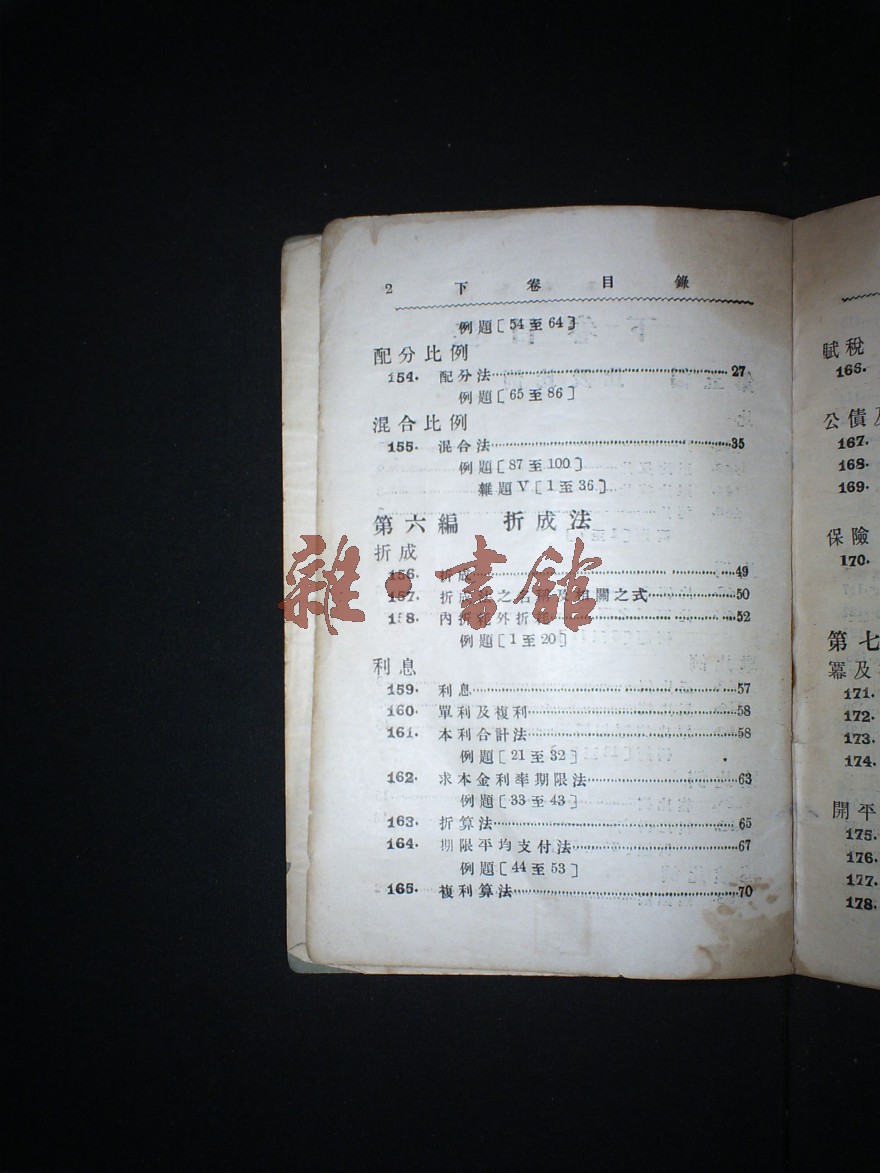 2 下卷目錄
例題〔54至64〕
配分比例
154. 配分法 27
例題〔65至86〕
混合比例
155. 混合法 35
例題〔87至100〕
雜題V〔1至36〕
第六編 折成法
折成
156. 折成 49
157. 折成 之名稱及相關之式 50
158. 內折 外折 52
例題〔1至20〕
利息
159. 利息 57
160. 單利及複利 58
161. 本利合計法 58
例題〔21至32〕
162. 求本金利率期限法 63
例題〔33至43〕
163. 折算法 65
164. 期限平均支付法 67
例題〔44至53〕
165. 複利算法 70
雜·書館
賦稅
166.
公債及
167.
168.
169.
保險
170.
第七
冪及
171.
172.
173.
174.
開平
175.
176.
177.
178.